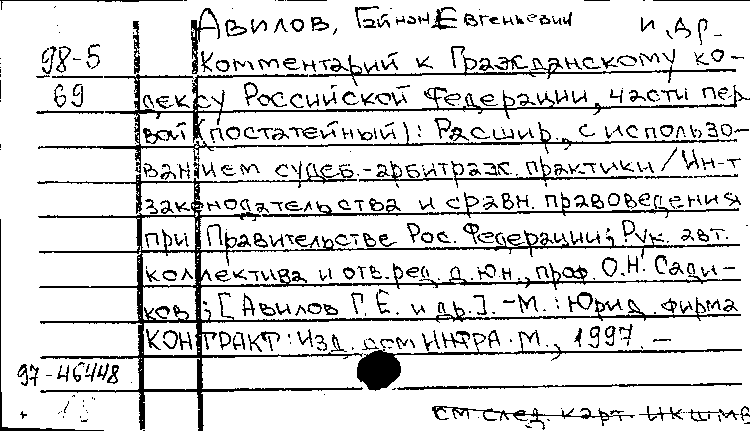 Авилов, Гайнан Евгеньевич и др.
98-5 Комментарий к Гражданскому ко-
69 дексу Российской Федерации, части пер
вой (постатейный): Расшир., с использо-
ванием судеб.-арбитраж. практики / Ин-т
законодательства и сравн. правоведения
при Правительстве Рос. Федерации; Рук. авт.
коллектива и отв. ред. д. юн., проф. О.Н. Сади-
ков; [Авилов Г.Е. и др.]. -М.: Юрид. фирма
КОНТРАКТ: Изд. дом ИНФРА-М., 1997. —
97-46448
см след. карт.